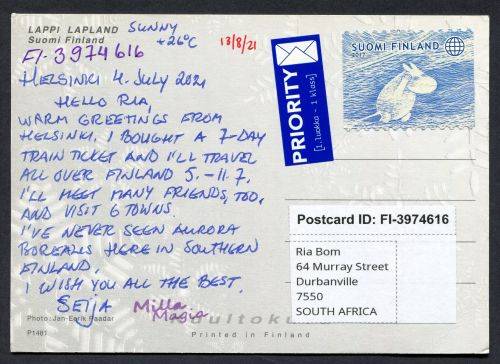 LAPPI LAPLAND
Suomi Finland
SUNNY
+26°C
13/8/21
FI-3974616
HELSINKI 4. JULY 2021
HELLO RIA,
WARM GREETINGS FROM
HELSINKI. I BOUGHT A 7-DAY
TRAIN TICKET AND I'LL TRAVEL
ALL OVER FINLAND 5.-11.7.
I'LL MEET MANY FRIENDS, TOO,
AND VISIT 6 TOWNS.
I'VE NEVER SEEN AURORA
BOREALIS HERE IN SOUTHERN
FINLAND.
I WISH YOU ALL THE BEST.
SEIJA
Milla
Magia
Photo: Jan-Eerik Paadar
P1481
Printed in Finland
PRIORITY
[1.luokka - 1 klass]
SUOMI FINLAND
2017
Postcard ID: FI-3974616
Ria Bom
64 Murray Street
Durbanville
7550
SOUTH AFRICA